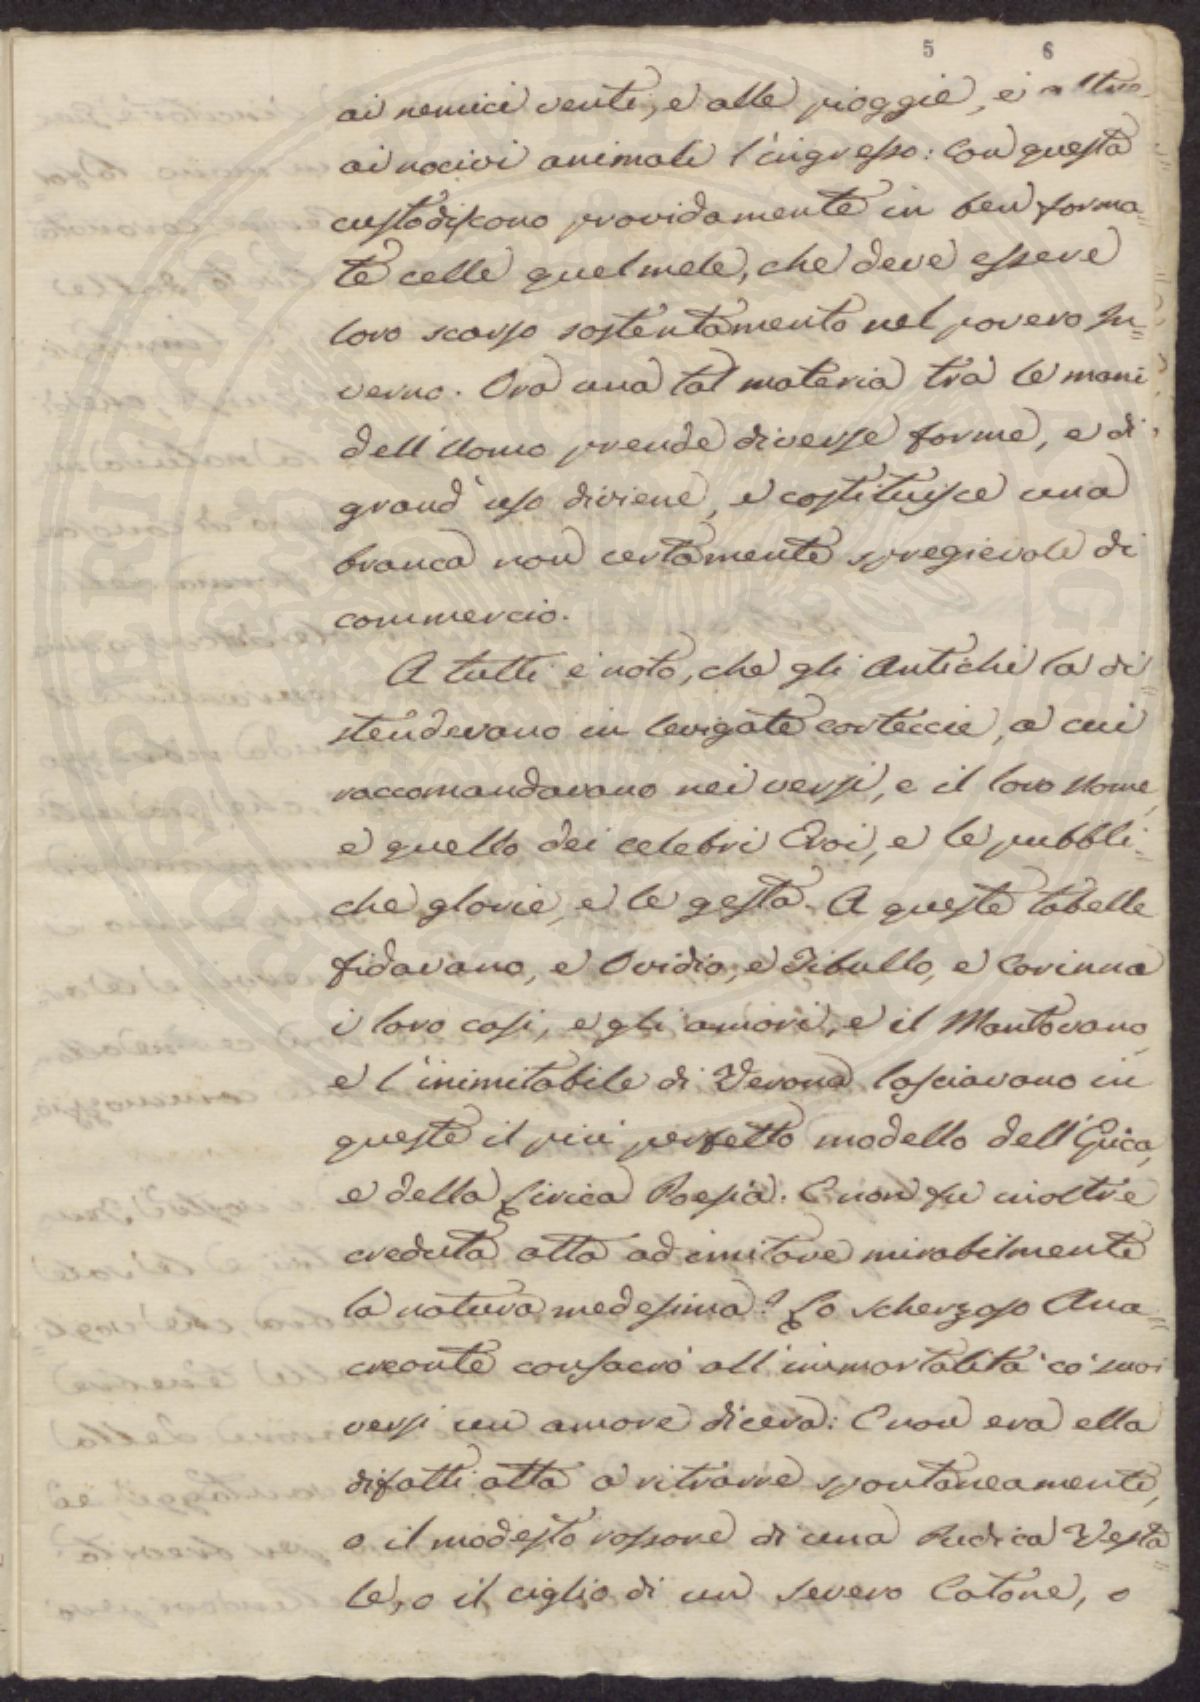 5 6
ai nemici venti, e alle pioggie, e altro
ai nocivi animali l'ingresso: Con questa
custodiscono providamente in ben forma=
te celle quel mele, che deve essere
loro scarso sostentamento nel povero In=
verno. Ora una tal materia tra le mani
dell'Uomo prende diverse forme, e di
grand'uso diviene, e costituisce una
branca non certamente spregievole di
commercio.
A tutti è noto, che gli Antichi la di=
stendevano in levigate corteccie, a cui
raccomandavano nei versi, e il loro Nome,
e quello dei celebri Eroi, e le pubbli=
che glorie, e le gesta. A queste tabelle
fidavano, e Ovidio, e Tibullo, e Corinna
i loro casi, e gli amori, e il Mantovano,
e l'inimitabile di Verona lasciavano in
queste il più perfetto modello dell'Epica,
e della Lirica Poesia. E non fu inoltre
creduta atta ad imitare mirabilmente
la natura medesima? Lo scherzoso Ana=
creonte consacrò all'immortalità co' suoi
versi un amore di cera: E non era ella
difatti atta a ritrarre spontaneamente,
o il modesto rossore di una Pudica Vesta=
le, o il ciglio di un severo Catone, o
PROSPERITATI PUBLICAE AUGENDAE